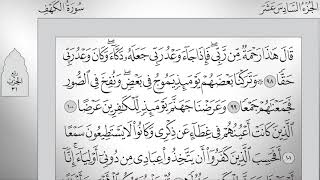 سُورَةُ الكَهْفِ
الجُزْءُ السَّادِسَ عَشَرَ
قَالَ هَٰذَا رَحْمَةٌ مِّن رَّبِّي ۖ فَإِذَا جَاءَ وَعْدُ رَبِّي جَعَلَهُ دَكَّاءَ ۖ وَكَانَ وَعْدُ رَبِّي
حَقًّا ٩٨ وَتَرَكْنَا بَعْضَهُمْ يَوْمَئِذٍ يَمُوجُ فِي بَعْضٍ ۖ وَنُفِخَ فِي الصُّورِ
فَجَمَعْنَاهُمْ جَمْعًا ٩٩ وَعَرَضْنَا جَهَنَّمَ يَوْمَئِذٍ لِّلْكَافِرِينَ عَرْضًا ١٠٠
الَّذِينَ كَانَتْ أَعْيُنُهُمْ فِي غِطَاءٍ عَن ذِكْرِي وَكَانُوا لَا يَسْتَطِيعُونَ سَمْعًا
١٠١ أَفَحَسِبَ الَّذِينَ كَفَرُوا أَن يَتَّخِذُوا عِبَادِي مِن دُونِي أَوْلِيَاءَ ۚ إِنَّا
الحِزْب
٣١